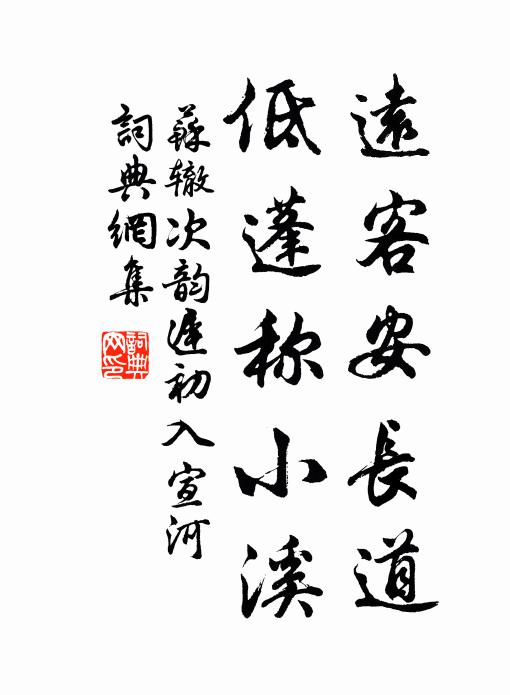 遠客安長道
低蓬称小溪
蘇辙次韵遲初入宣河
詞典網集
詞典网印